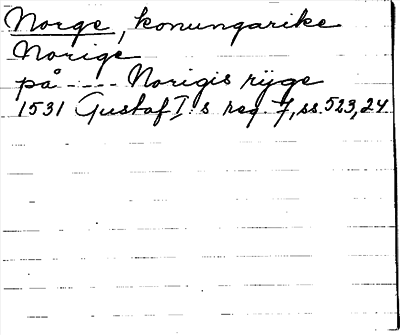 Norge, konungarike
Norige
på ---- Norigis rijge
1531 Gustaf I:s reg. 7, ss. 523, 24